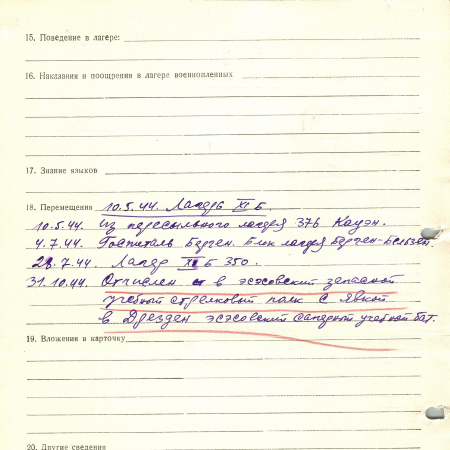 15. Поведение в лагере:
16. Наказания и поощрения в лагере военнопленных
17. Знание языков
18. Перемещения 10.5.44. Лагерь XI Б.
10.5.44. Из пересыльного лагеря 376 Кауэн.
4.7.44. Госпиталь Берген. Блок лагеря Берген-Бельзен.
28.7.44. Лагерь XI Б 350.
31.10.44. Отчислен в эсэсовский запасной
учебный стрелковый полк с явкой
в Дрезден эсэсовский саперный учебный бат.
19. Вложения в карточку
20. Другие сведения